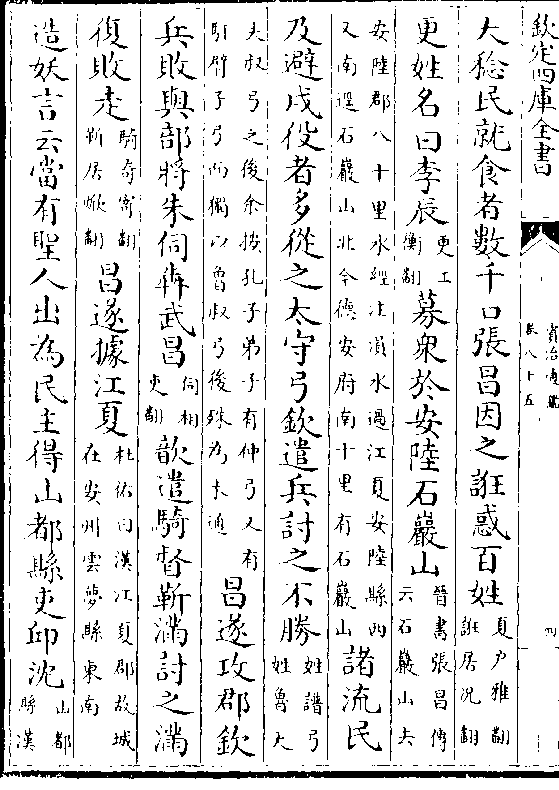 欽定四庫全書
資治通鑑
卷八十五
四
大稔民就食者數千口張昌因之誑惑百姓夏戶雅翻誑居況翻
更姓名曰李辰更工衡翻募衆於安陸石巖山晉書張昌傳云石巖山去
安陸郡八十里水經注溳水過江夏安陸縣西又南逕石巖山北今德安府南十里有石巖山諸流民
及避戍役者多從之太守弓欽遣兵討之不勝姓譜弓姓魯大
夫叔弓之後余按孔子弟子有仲弓又有馯臂子弓而獨以魯叔弓後殊為未通昌遂攻郡欽
兵敗與部將朱伺奔武昌伺相吏翻歆遣騎督靳滿討之滿
復敗走騎奇寄翻靳居焮翻昌遂據江夏杜佑曰漢江夏郡故城在安州雲夢縣東南
造妖言云當有聖人出為民主得山都縣吏邱沈山都縣漢